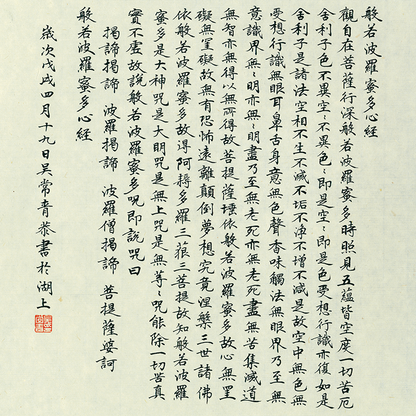 般若波羅蜜多心經
觀自在菩薩行深般若波羅蜜多時照見五蘊皆空度一切苦厄
舍利子色不異空〻不異色〻即是空〻即是色受想行識亦復如是
舍利子是諸法空相不生不滅不垢不淨不增不減是故空中無色無
受想行識無眼耳鼻舌身意無色聲香味觸法無眼界乃至無
意識界無〻明亦無〻明盡乃至無老死亦無老死盡無苦集滅道
無智亦無得以無所得故菩提薩埵依般若波羅蜜多故心無罣
礙無罣礙故無有恐怖遠離顛倒夢想究竟涅槃三世諸佛
依般若波羅蜜多故得阿耨多羅三藐三菩提故知般若波羅
蜜多是大神咒是大明咒是無上咒是無等〻咒能除一切苦真
實不虛故說般若波羅蜜多呪即說咒曰
揭諦揭諦 波羅揭諦 波羅僧揭諦 菩提薩婆訶
般若波羅蜜多心經
歲次戊戌四月十九日吴常青恭書於湖上